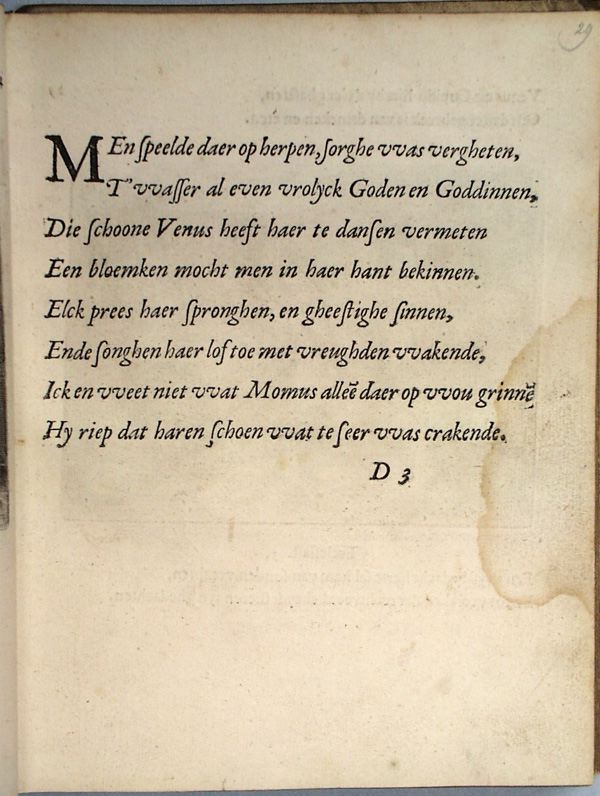 29
MEn ſpeelde daer op herpen, ſorghe vvas vergheten,
T' vvaſſer al even vrolyck Goden en Goddinnen,
Die ſchoone Venus heeft haer te danſen vermeten
Een bloemken mocht men in haer hant bekinnen.
Elck prees haer ſpronghen, en gheeſtighe ſinnen,
Ende ſonghen haer lof toe met vreughden vvakende,
Ick en vveet niet vvat Momus alleē daer op vvou grinnē
Hy riep dat haren ſchoen vvat te ſeer vvas crakende.
D 3